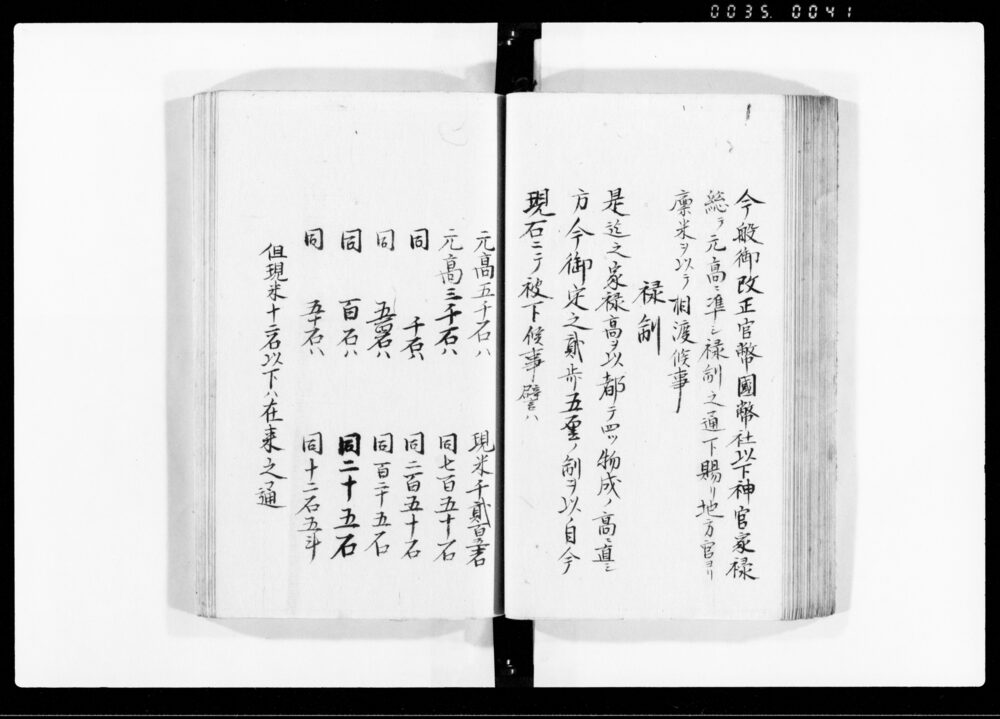 0035 0041
今般御改正官幣國幣社以下神官家禄
総テ元高ニ準シ禄制之通下賜リ地方官ヨリ
廩米ヲ以テ相渡候事
禄制
是迄之家禄高ヲ以都テ四ツ物成ノ高ニ直シ
方今御定之貳歩五厘ノ制ヲ以自今
現石ニテ被下候事譬ハ
元高五千石ハ 現米千貳百五十石
元高三千石ハ 同七百五十石
同 千石ハ 同二百五十石
同 五百石ハ 同百二十五石
同 百石ハ 同二十五石
同 五十石ハ 同十二石五斗
但現米十二石以下ハ在来之通